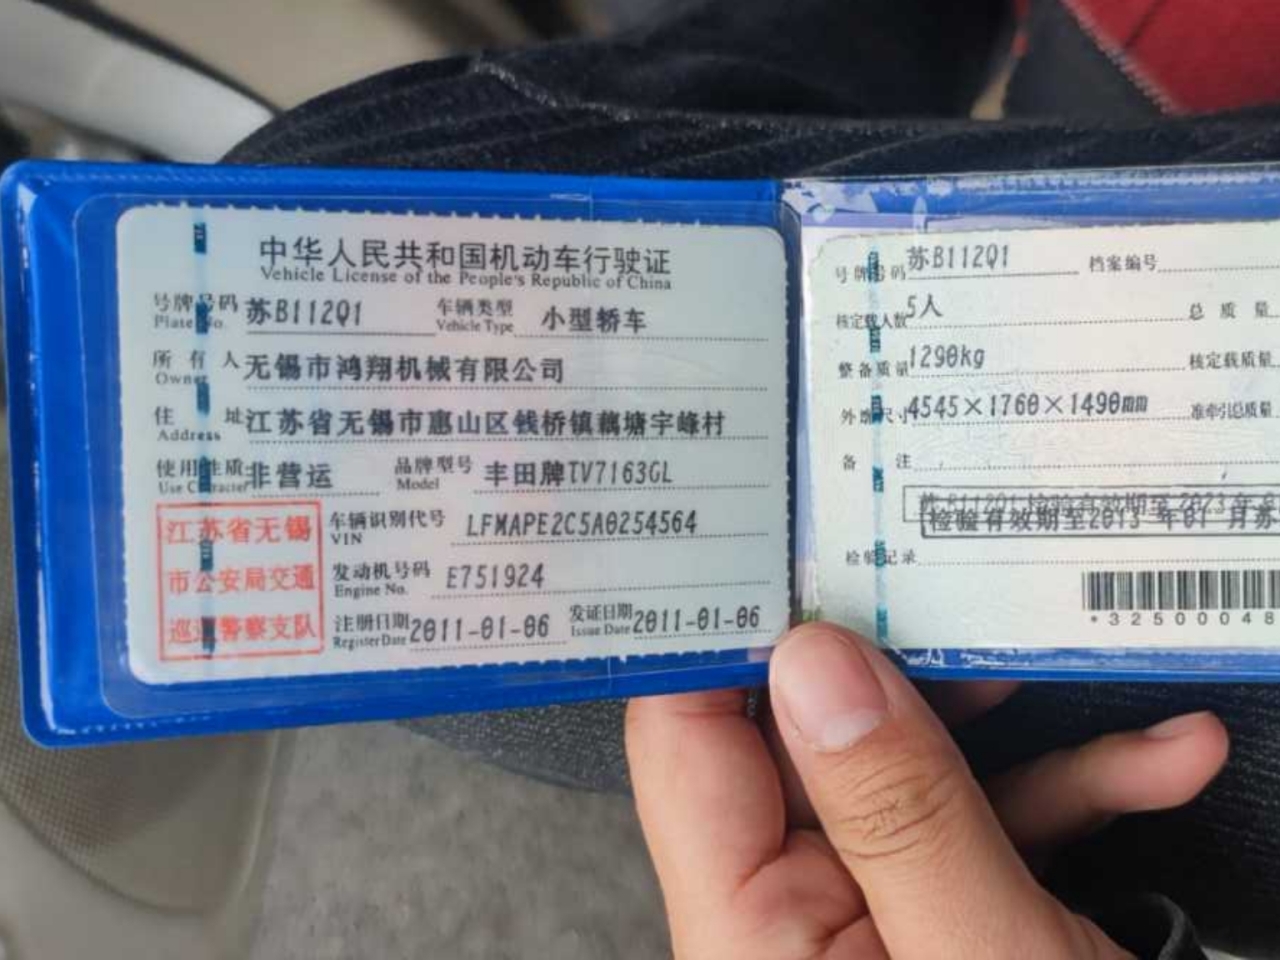 中华人民共和国机动车行驶证
Vehicle License of the People's Republic of China
号牌号码 苏B112Q1 车辆类型 小型轿车
Plate No. Vehicle Type
所有人 无锡市鸿翔机械有限公司
Owner
住址 江苏省无锡市惠山区钱桥镇藕塘宇峰村
Address
使用性质 非营运 品牌型号 丰田牌TV7163GL
Use Character Model
江苏省无锡
市公安局交通
巡逻警察支队
车辆识别代号 LFMAPE2C5A0254564
VIN
发动机号码 E751924
Engine No.
注册日期 2011-01-06 发证日期 2011-01-06
Register Date Issue Date
号牌号码 苏B112Q1 档案编号
核定载人数 5人 总质量
整备质量 1290kg 核定载质量
外廓尺寸 4545×1760×1490mm 准牵引总质量
备注
苏B112Q1 检验有效期至 2023年
检验有效期至2013年01月苏
检验记录
*32500048